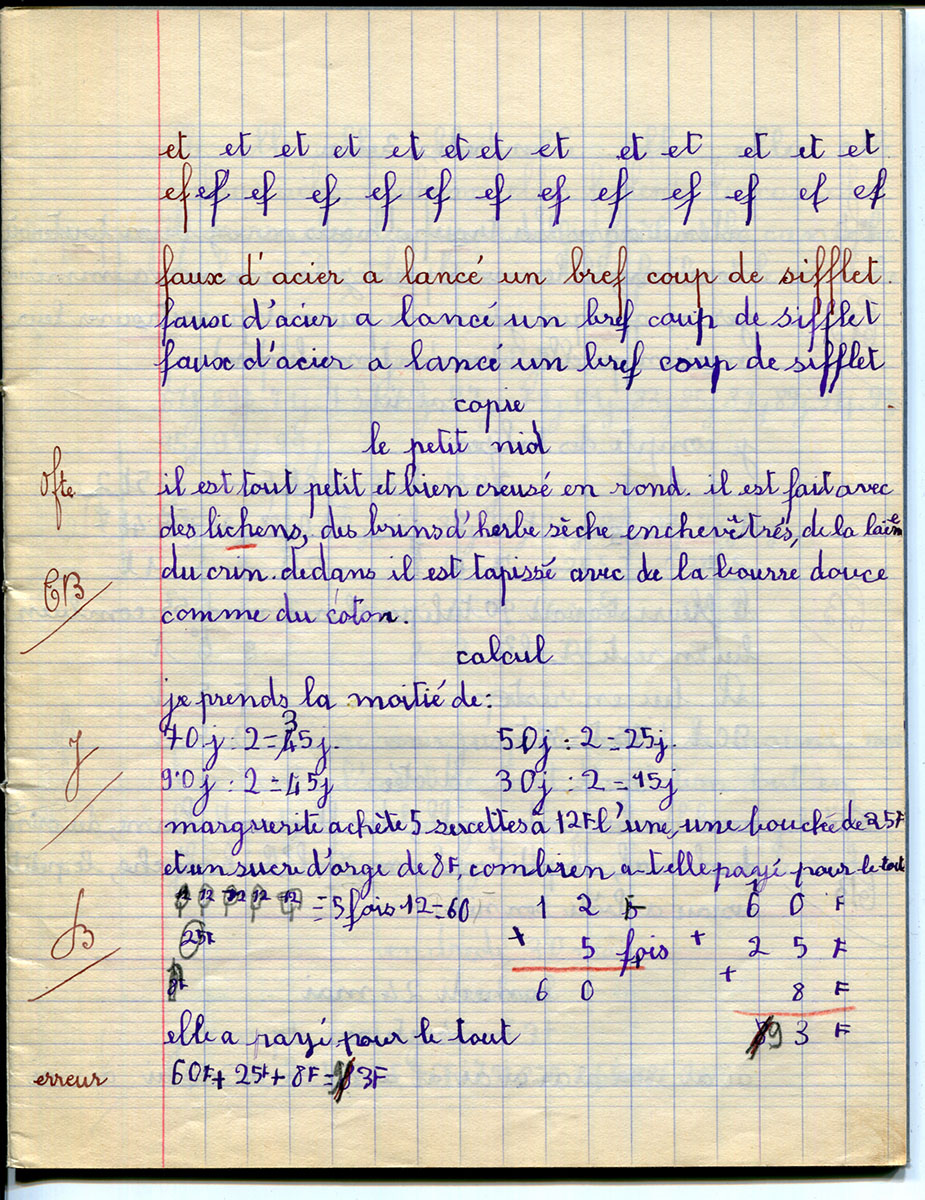 et et et et et et et et et et et et et
ef ef ef ef ef ef ef ef ef ef ef ef
faux d'acier a lancé un bref coup de sifflet.
faux d'acier a lancé un bref coup de sifflet
faux d'acier a lancé un bref coup de sifflet
copie
le petit nid
il est tout petit et bien creusé en rond. il est fait avec
des lichens, des brins d'herbe sèche enchevêtrés, de la laine
du crin. dedans il est tapissé avec de la bourre douce
comme du coton.
TB
calcul
je prends la moitié de:
70j : 2 = 35j. 50j : 2 = 25j.
90j : 2 = 45j 30j : 2 = 15j
marguerite achète 5 sucettes à 12F l'une, une bouchée de 25F
et un sucre d'orge de 8F, combien a-t-elle payé pour le tout
12 12 12 12 12 = 5 fois 12 = 60 1 2 F 6 0 F
25F + 5 fois + 2 5 F
8F 6 0 + 8 F
B
elle a payé pour le tout 9 3 F
erreur 60F + 25F + 8F = 93F